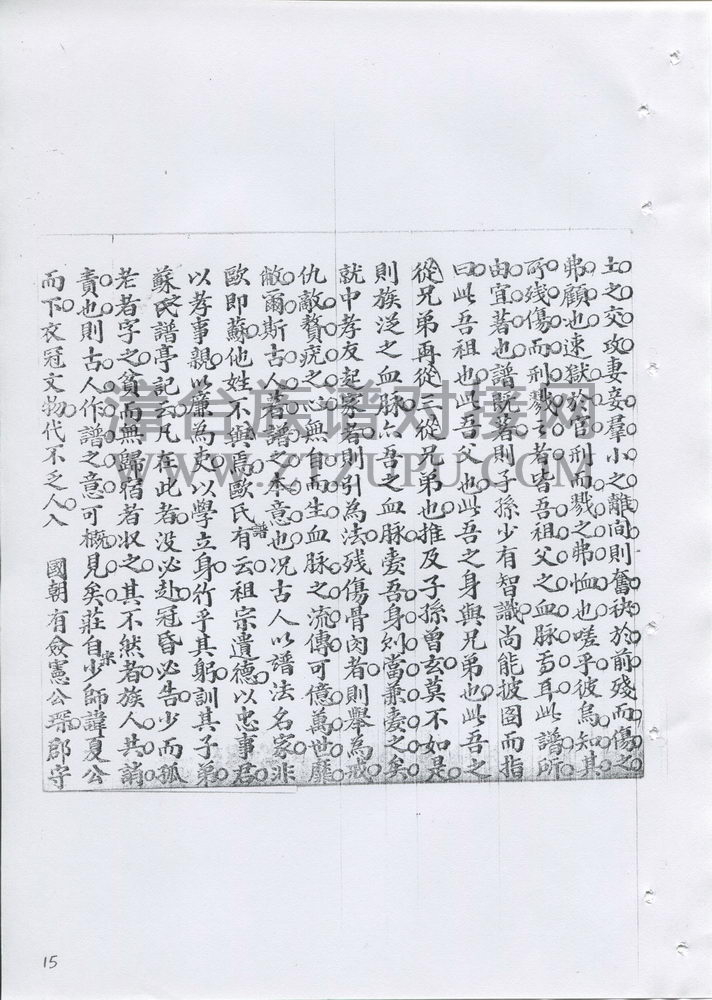 土之交攻妻妾羣小之離間則奮袂於前殘而傷之
弗顧也速獄於官刑而戮之弗恤也嗟乎彼烏知其
所殘傷而刑戮之者皆吾祖父之血脉焉耳此譜所
由宜著也譜既著則子孫少有智識尚能披圖而指
曰此吾祖也此吾父也此吾之身與兄弟也此吾之
從兄弟再從三從兄弟也推及子孫曾玄莫不如是
則族泛之血脉亦吾之血脉愛吾身則當兼愛之矣
就中孝友起家者則引為法殘傷骨肉者則舉為戒
仇敵贅疣之心無自而生血脉之流傳可億萬世靡
敝爾斯古人著譜之本意也况古人以譜法名家非
歐即蘇他姓不與焉歐氏有譜云祖宗遺德以忠事君
以孝事親以廉為吏以學立身竹乎其躬訓其子弟
蘇氏譜亭記云凡在此者没必赴冠昏必告少而孤
老者字之貧而無歸宿者收之其不然者族人共誚
責也則古人作譜之意可概見矣莊自宋少師諱夏公
而下衣冠文物代不乏人入 國朝有僉憲公琛郡守
漳台族谱对接网
WWW.ZTZUPU.COM
15